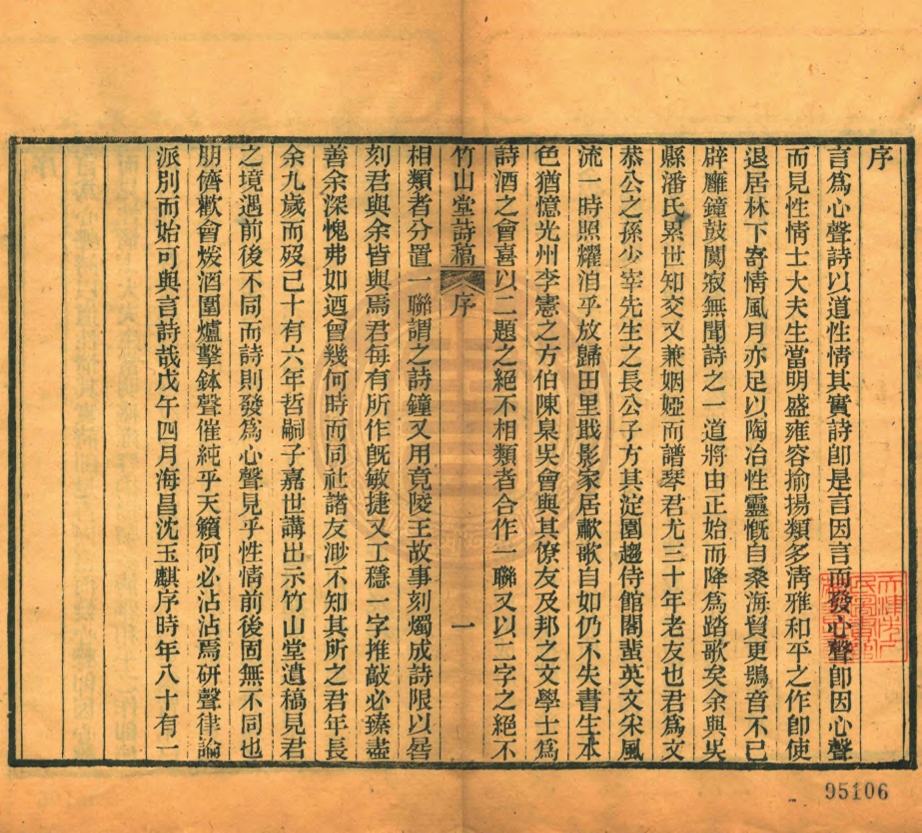 序
言爲心聲詩以道性情其實詩卽是言因言而發心聲卽因心聲
而見性情士大夫生當明盛雍容揄揚類多淸雅和平之作卽使
退居林下寄情風月亦足以陶冶性靈慨自桑海貿更鴞音不已
辟廱鐘鼓闃寂無聞詩之一道將由正始而降爲踏歌矣余與吳
縣潘氏累世知交又兼姻婭而譜琴君尤三十年老友也君爲文
恭公之孫少宰先生之長公子方其淀園趨侍館閣蜚英文宋風
流一時照耀洎乎放歸田里戢影家居歗歌自如仍不失書生本
色猶憶光州李憲之方伯陳臬吳會與其僚友及邦之文學士爲
詩酒之會喜以二題之絕不相類者合作一聯又以二字之絕不
竹山堂詩稿 序 一
相類者分置一聯謂之詩鐘又用竟陵王故事刻燭成詩限以晷
刻君與余皆與焉君每有所作旣敏捷又工穩一字推敲必臻盡
善余深愧弗如迺曾幾何時而同社諸友渺不知其所之君年長
余九歲而歿已十有六年哲嗣子嘉世講出示竹山堂遺稿見君
之境遇前後不同而詩則發爲心聲見乎性情前後固無不同也
朋儕歡會煖酒圍爐擊鉢聲催純乎天籟何必沾沾焉研聲律論
派別而始可與言詩哉戊午四月海昌沈玉麒序時年八十有一
95106